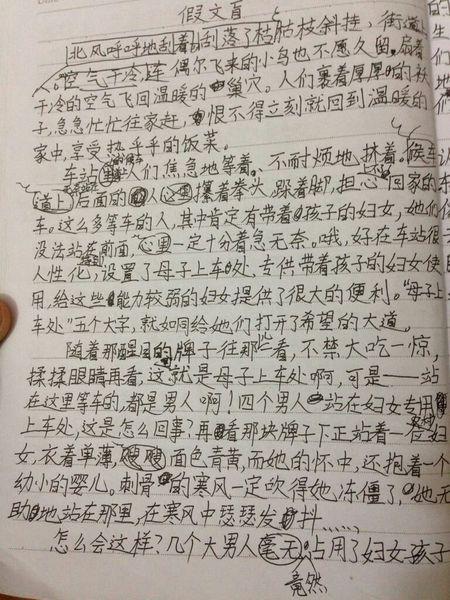 假文盲
北风呼呼地刮着,刮落了枯枝斜挂,街道上
。空气干冷,连偶尔飞来的小鸟也不愿久留,扇着
干冷的空气飞回温暖的巢穴。人们裹着厚厚的袄
子,急急忙忙往家赶,恨不得立刻就回到温暖的
家中,享受热乎乎的饭菜。
车站里人们焦急地等着,不耐烦地挤着。候车
道上后面的人攥着拳头,踮着脚,担心回家的
车。这么多等车的人,其中肯定有带着孩子的妇女,她们
没法站在前面,心里一定十分着急无奈。哦,好在车站很
人性化,设置了母子上车处,专供带着孩子的妇女使
用,给这些能力较弱的妇女提供了很大的便利。“母子上
车处”五个大字,就如同给她们打开了希望的大道。
随着那醒目的牌子往那看,不禁大吃一惊,
揉揉眼睛再看,这就是母子上车处啊,可是——站
在这里等车的,都是男人啊!四个男人站在妇女专用
上车处,这是怎么回事?再看那块牌子下正站着一位妇
女,衣着单薄,面色青黄,而她的怀中,还抱着一个
幼小的婴儿。刺骨的寒风一定吹得她冻僵了,她无
助地站在那里,在寒风中瑟瑟发抖……
怎么会这样?几个大男人毫无占用了妇女孩子
竟然